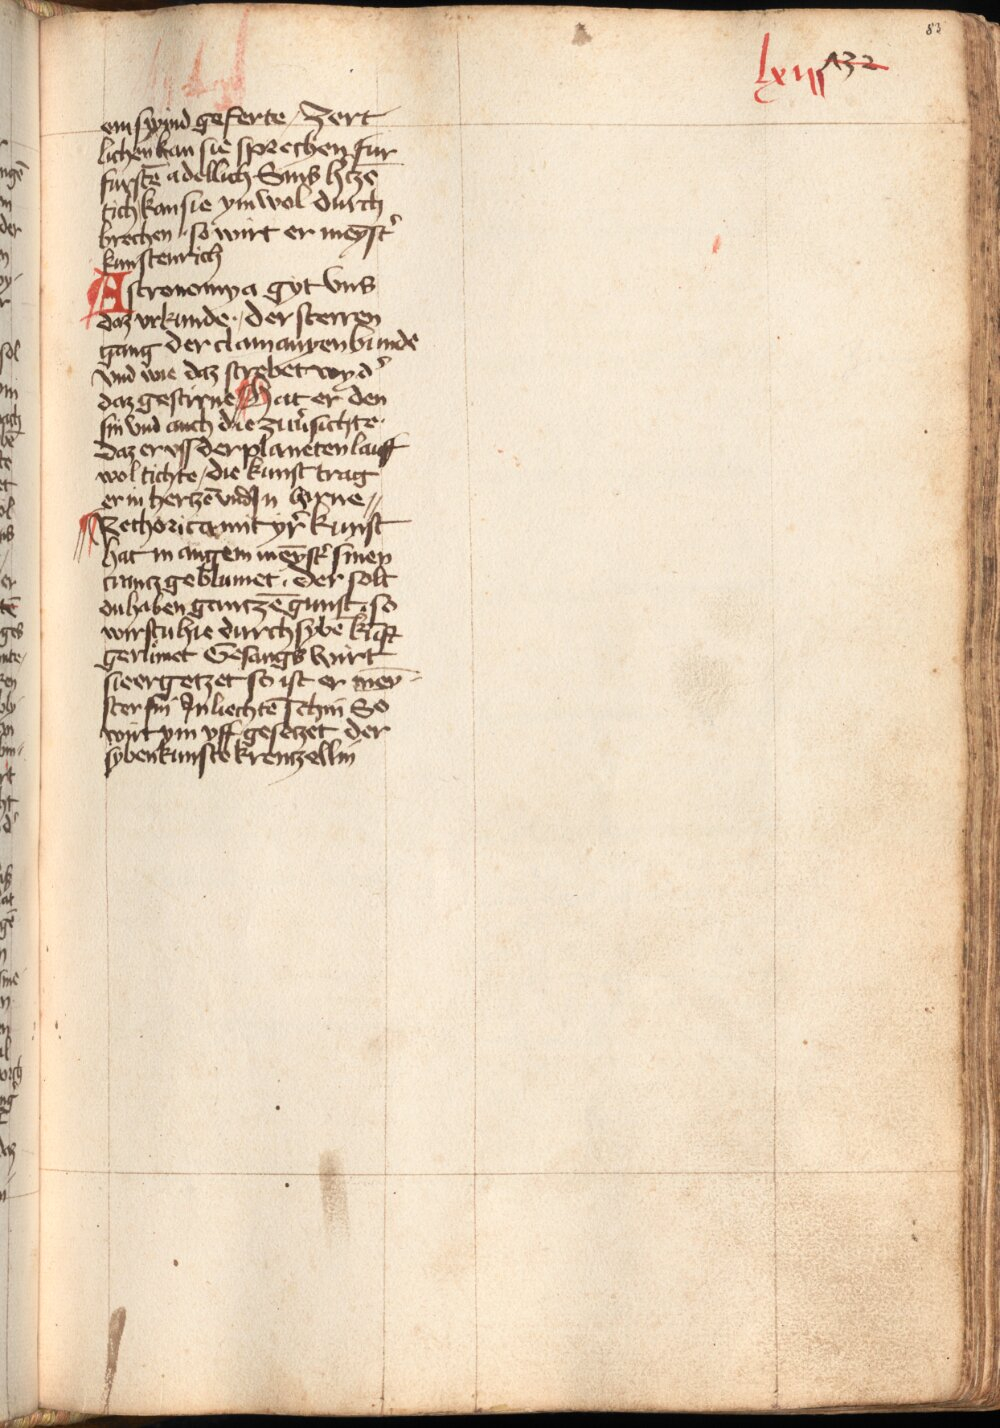 83
lxiii 132
ein swind geferte / Zert
lichen kan sie sprechen fur
furstē adellich Sins h̾tzē
tich kan sie ym wol durch
brechen · so wirt er meyst̾
kunstenrich
Astronomya gyt vns
daz vrkunde · / der sterren
gang der
vnd wie daz strebet wyd̾
daz gestirne Hat er den
sin vnd auch die zuu̾sichte ·
Daz er vss der planeten lauff
wol tichte / die kunst trag
er in hertzē vnd In hirne //
Rethorica mit yr̾ kunst
hat mangem meyst̾ sinen
crantz geblumet · der solt
du haben gantzē gunst · so
wirstu hie durch sybē kūst
gerumet Gesangs wirt
sie ergetzet so ist er mey-
ster sin In liechtē schin So
wirt ym vff gesetzet der
syben kunste krentzellin